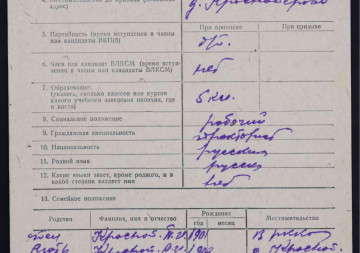 адрес)
д. Красноперово
При приписке При призыве
5. Партийность (время вступления в члены
или кандидаты ВКП(б) б/п.
6. Член или кандидат ВЛКСМ (время вступ-
ления в члены или кандидаты ВЛКСМ) нет
7. Образование:
(указать, сколько классов или курсов
какого учебного заведения окончил, где
и когда) 5 кл.
8. Социальное положение рабочий
9. Гражданская специальность тракторист
10. Национальность русский
11. Родной язык русск
12. Какие языки знает, кроме родного, и в
какой степени владеет ими нет
13. Семейное положение
Родство Фамилия, имя и отчество Рождение Местожительство
год месяц
отец 1901